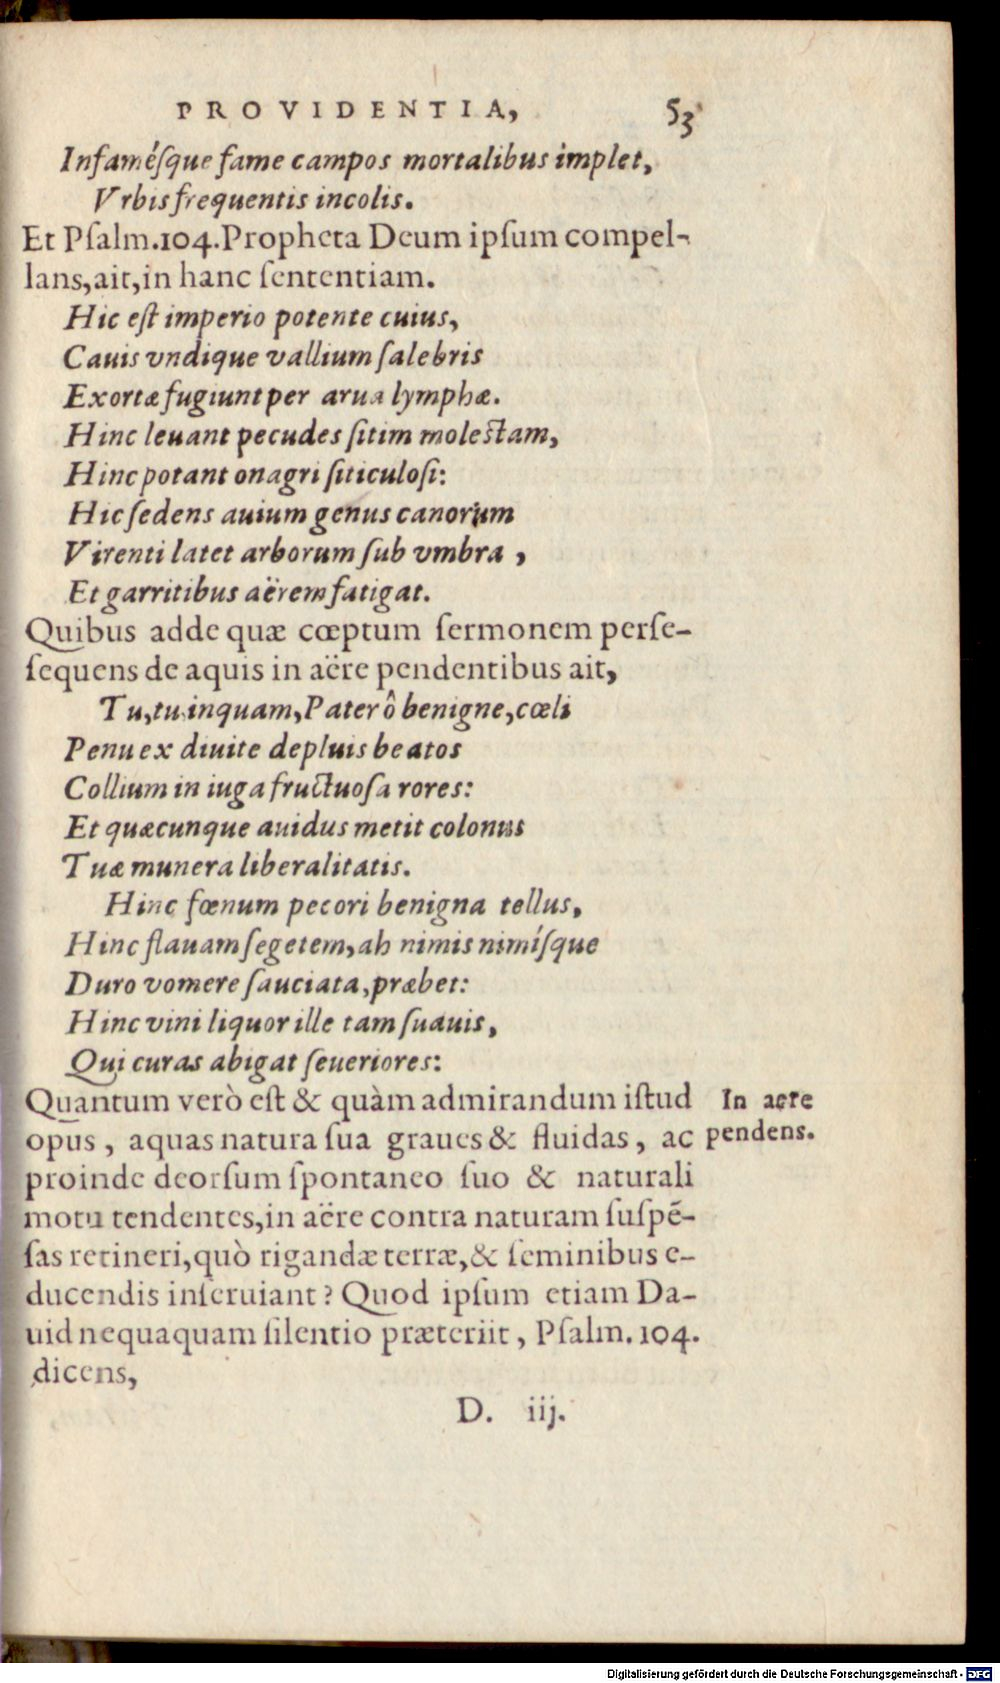 PROVIDENTIA, 53
Infamésque fame campos mortalibus implet,
Vrbis frequentis incolis.
Et Pſalm.104.Propheta Deum ipſum compel-
lans,ait,in hanc ſententiam.
Hic eſt imperio potente cuius,
Cauis vndique vallium ſalebris
Exortæ fugiunt per arua lymphæ.
Hinc leuant pecudes ſitim moleſtam,
Hinc potant onagri ſiticuloſi:
Hic ſedens auium genus canorum
Virenti latet arborum ſub vmbra ,
Et garritibus aërem fatigat.
Quibus adde quæ cœptum ſermonem perſe-
ſequens de aquis in aëre pendentibus ait,
Tu,tu inquam,Pater ô benigne,cœli
Penu ex diuite depluis beatos
Collium in iuga fructuoſa rores:
Et quæcunque auidus metit colonus
Tuæ munera liberalitatis.
Hinc fœnum pecori benigna tellus,
Hinc flauam ſegetem,ah nimis nimíſque
Duro vomere ſauciata,præbet:
Hinc vini liquor ille tam ſuauis,
Qui curas abigat ſeueriores:
Quantum verò eſt & quàm admirandum iſtud
In aere
opus , aquas natura ſua graues & fluidas, ac
pendens.
proinde deorſum ſpontaneo ſuo & naturali
motu tendentes,in aëre contra naturam ſuſpẽ-
ſas retineri,quò rigandæ terræ,& ſeminibus e-
ducendis inſeruiant? Quod ipſum etiam Da-
uid nequaquam ſilentio præteriit, Pſalm. 104.
dicens,
D. iij.
Digitalisierung gefördert durch die Deutsche Forschungsgemeinschaft - DFG